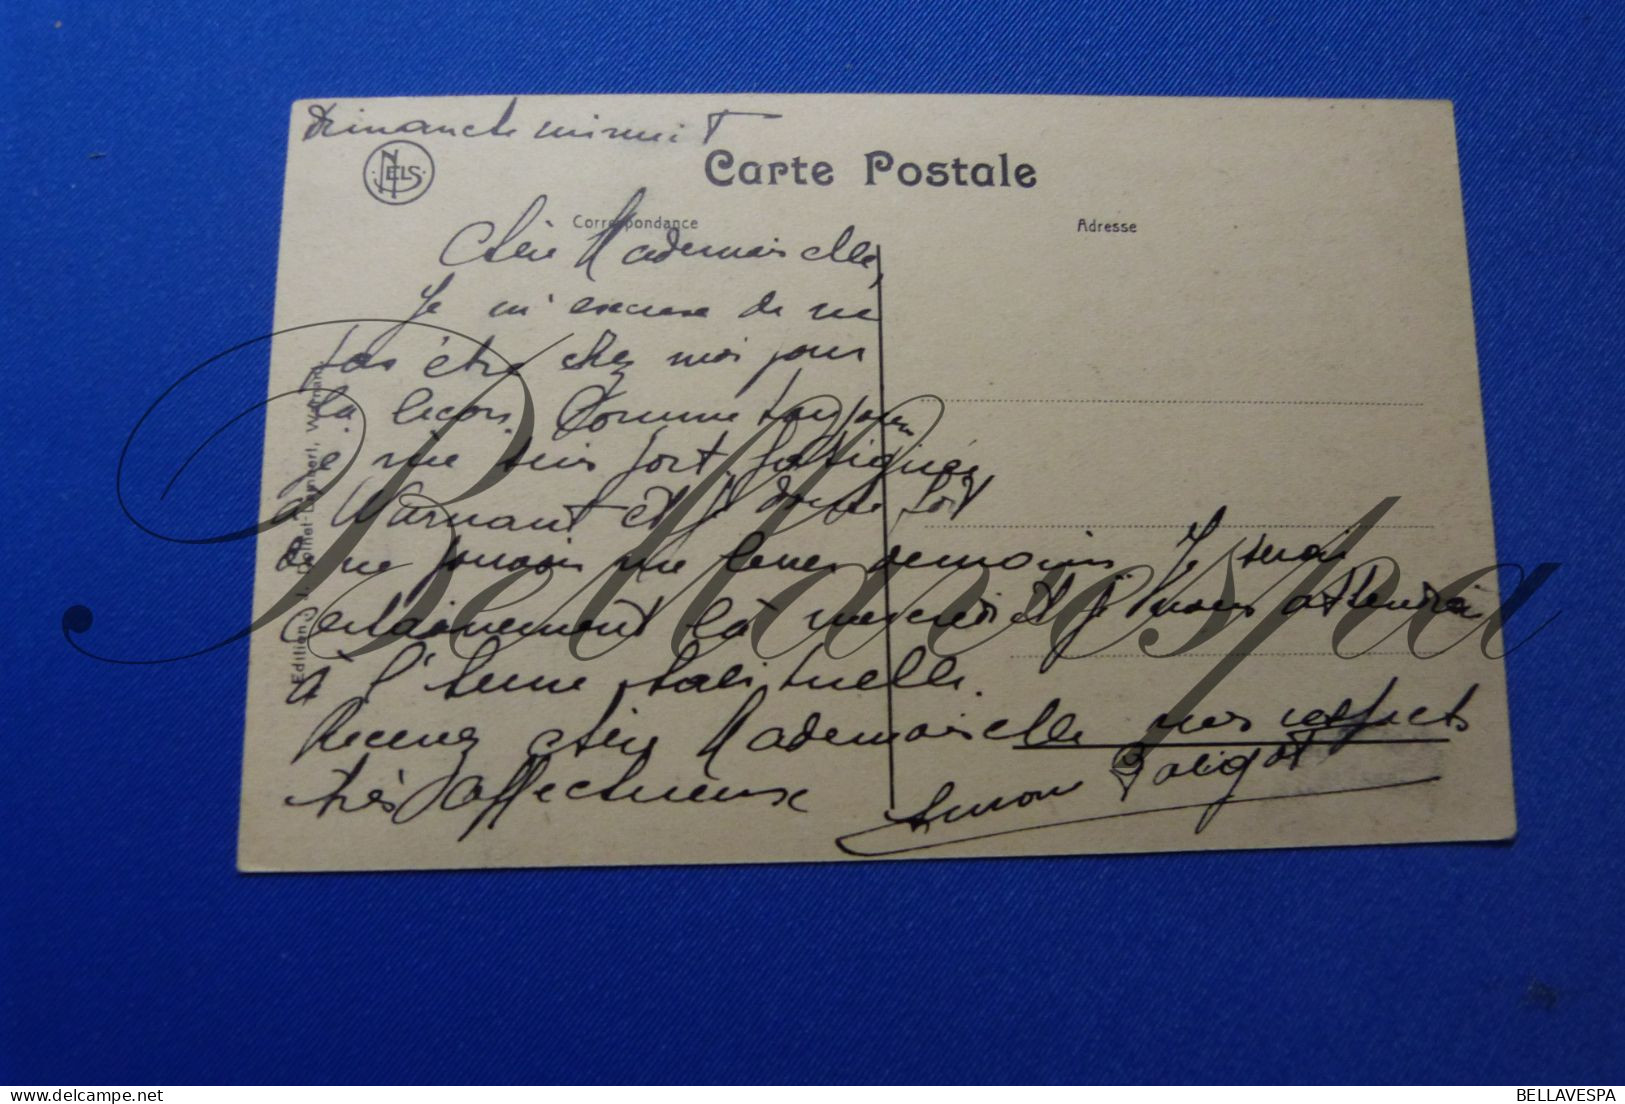 Dimanche minuit
NELS
Carte Postale
Correspondance
Adresse
Chère Mademoiselle,
Je m'excuse de ne
pas être chez moi pour
la leçon. Comme toujours
je me suis fort fatiguée
à Warnant et je doute fort
de ne pouvoir me lever demain. Je serai
certainement là mercredi et je vous attendrai
à l'heure habituelle.
Recevez chère Mademoiselle mes respects
très affectueux
Simone Paligot
Edition J. Dolhet-Lambert, Warnant.
Bellavespa
BELLAVESPA